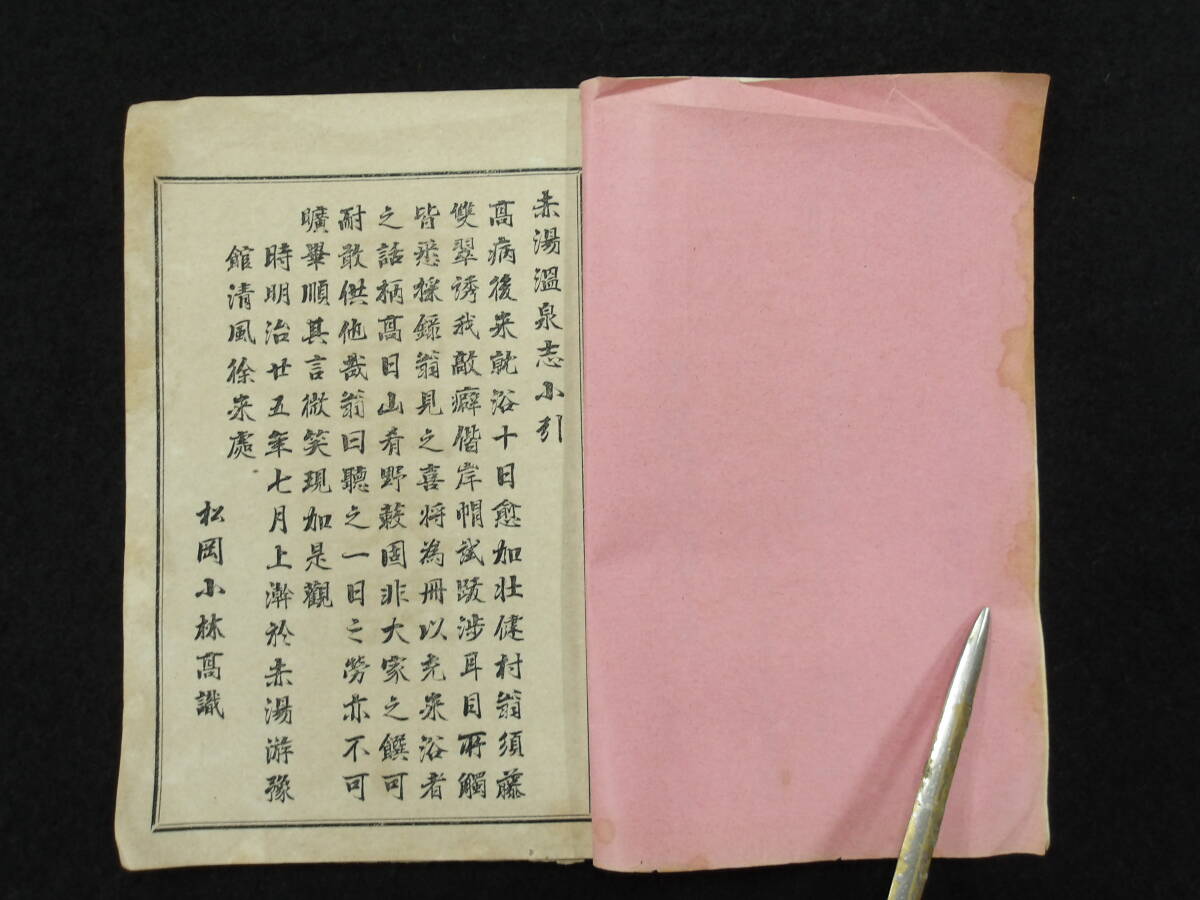 赤湯温泉志小引
髙病後来就浴十日愈加壮健村翁須藤
雙翠誘我敵癖偕岸幘試跋渉耳目所觸
皆悉採録翁見之喜将為冊以充来浴者
之話柄髙曰山肴野蔌固非大家之饌可
耐敢供他哉翁曰聽之一日之勞亦不可
曠畢順其言微笑現如是觀
時明治廿五年七月上澣於赤湯游豫
館清風徐来處
松岡小林髙識